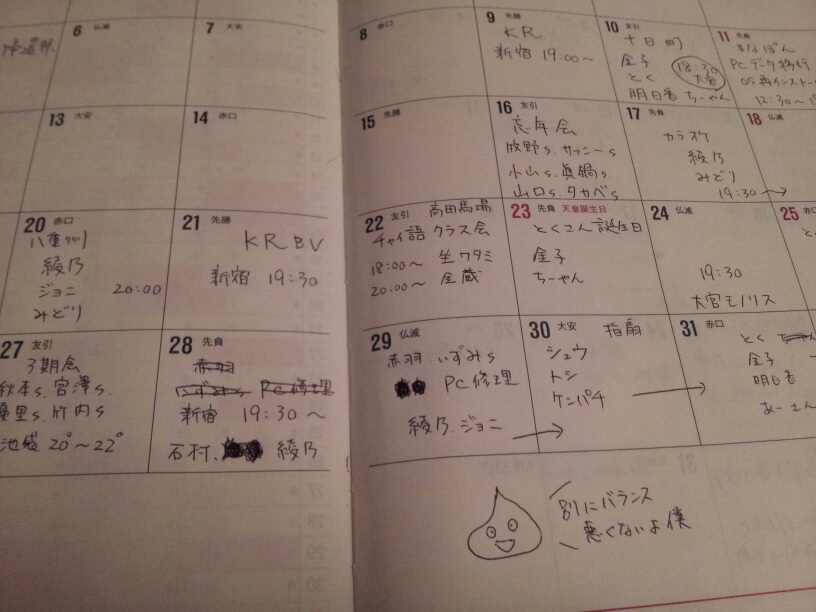 6 仏滅
7 大安
13 大安
14 赤口
20 赤口
八重
綾乃
ジョニ 20:00
みどり
21 先勝
KRBV
新宿 19:30
27 友引
3期会
秋本s. 宮澤s.
竹内s
池袋 20°〜22°
28 先負
赤羽
いずみs PC修理
新宿 19:30〜
石村、 綾乃
8 赤口
9 先勝
KR
新宿 19:00〜
10 友引
十日町
金子 18:30
とく 大宮
明日香 ちーやん
11 先負
まなぽん
PCデータ移行
OS再インストー
12:30〜
15 先勝
16 友引
忘年会
牧野s. サッシーs
小山s. 眞鍋s.
山口s. タカベs
17 先負
カラオケ
綾乃
みどり
19:30〜→
18 仏滅
22 友引 高田馬場
チャイ語 クラス会
18:00〜 生ワタミ
20:00〜 金蔵
23 先負 天皇誕生日
とくさん誕生日
金子
ちーやん
24 仏滅
19:30
大宮モノリス
25 赤口
と
29 仏滅
赤羽 いずみs
PC修理
綾乃. ジョニ →
30 大安 指扇
シュウ
トシ
ケンパチ →
31 赤口
とく
金子
明日香
あーさん
MEMO
別にバランス
悪くないよ僕